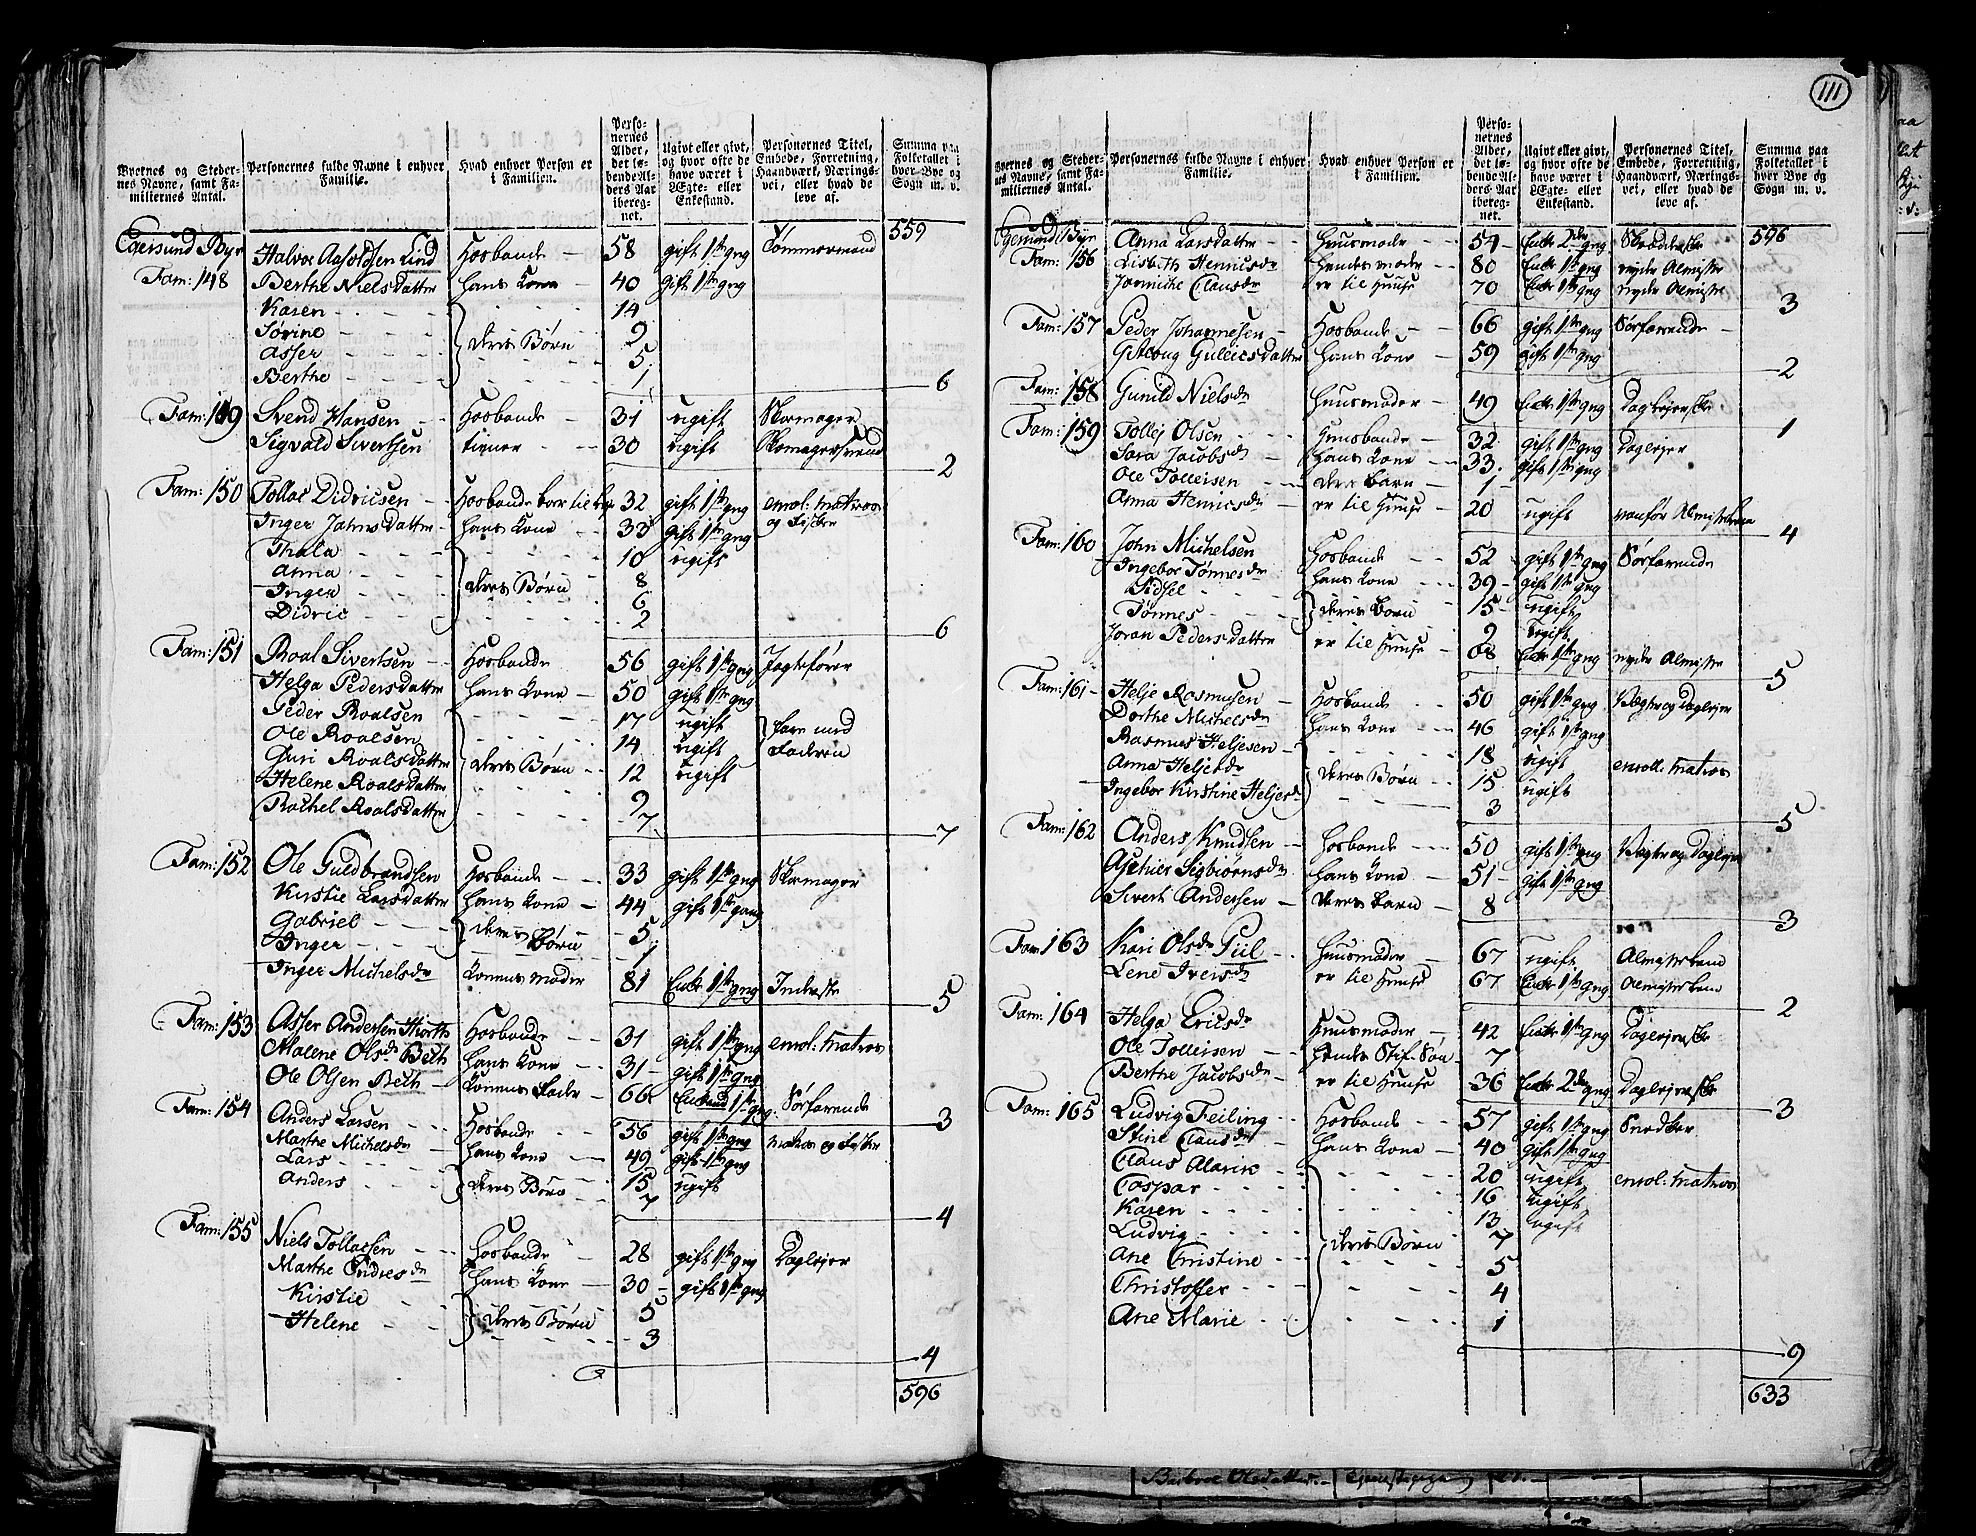 111
Byernes og Steder-
nes Navne, samt Fa-
miliernes Antal.
Personernes fulde Navne i enhver
Familie.
Hvad enhver Person er
i Familien.
Perso-
nernes
Alder,
det lø-
bende Al-
ders Aar
ibereg-
net.
Ugivt eller givt,
og hvor ofte de
have været i
Ægte- eller
Enkestand.
Personernes Titel,
Embede, Forretning,
Haandværk, Nærings-
vei, eller hvad de
leve af.
Summa paa
Folketallet i
hver Bye og
Sogn m. v.
559
Egersund Bye Halvor Aasoldsen Lind Hosbonde 58 gift 1ste gng Tømmermand
Fam: 148 Berthe Niels Datter hans Kone 40 gift 1ste gng
Karen 14
Sørine 9
Asser deres Børn 5
Berthe 1
6
Fam: 149 Svend Hansen Hosbonde 31 ugift Skomager
Sigvald Sivertsen tiener 30 ugift Skomagersvend
2
Fam: 150 Tollac Didricsen Hosbonde boer til leje 32 gift 1ste gng enrol: matros
Inger Jahns Datter hans Kone 33 gift 1ste gng og fisker
Thala 10 ugift
Anna 8
Inger deres Børn 6
Didric 2
6
Fam: 151 Roal Sivertsen Hosbonde 56 gift 1ste gng Jagtefører
Helga Peders Datter hans Kone 50 gift 1ste gng
Peder Roalsen 17 ugift fare med
Ole Roalsen 14 ugift Faderen
Guri Roalsdatter deres Børn 12 ugift
Helene Roalsdatter 9
Rachel Roalsdatter 7
7
Fam: 152 Ole Guldbrandsen Hosbonde 33 gift 1ste gng Skomager
Kirstie Larsdatter hans Kone 44 gift 1ste gang
Gabriel deres 5
Inger Børn 1
Inger Michelsdr Konens moder 81 Enke 1ste gng Inderste
5
Fam: 153 Asser Andersen Hiorth Hosbonde 31 gift 1ste gng enrol: matros
Malene Olsdr Bech hans Kone 31 gift 1ste gng
Ole Olsen Bech Konens Fader 66 Enkemd 1ste gng Sørfarende
3
Fam: 154 Anders Larsen Hosbonde 56 gift 1ste gng matros og fisker
Marthe Michelsdr hans Kone 49 gift 1ste gng
Lars deres Børn 15 ugift
Anders 7
4
Fam: 155 Niels Tollacsen Hosbonde 28 gift 1ste gng Daglejer
Marthe Endresdr hans Kone 30 gift 1ste gng
Kirstie deres Børn 5
Helene 3
4
596
Byernes og Steder-
nes Navne, samt Fa-
miliernes Antal.
Personernes fulde Navne i enhver
Familie.
Hvad enhver Person er
i Familien.
Perso-
nernes
Alder,
det lø-
bende Al-
ders Aar
ibereg-
net.
Ugivt eller givt,
og hvor ofte de
have været i
Ægte- eller
Enkestand.
Personernes Titel,
Embede, Forretning,
Haandværk, Nærings-
vei, eller hvad de
leve af.
Summa paa
Folketallet i
hver Bye og
Sogn m. v.
596
Egersund Bye Anna Larsdatter Huusmoder 54 Enke 2de gng Skrædderske
Fam: 156 Lisbeth Henricsdr hendes moder 80 Enke 1ste gng nyder Almisse
Janniche Clausdr er til Huuse 70 Enke 1ste gng nyder Almisse
3
Fam: 157 Peder Johannesen Hosbonde 66 gift 1ste gng Sørfarende
Gullicsdatter hans Kone 59 gift 1ste gng
2
Fam: 158 Gunild Nielsdr Huusmoder 49 Enke 1ste gng Daglejerske
1
Fam: 159 Tollej Olsen Huusbonde 32 gift 1ste gng Daglejer
Sara Jacobsdr hans Kone 33 gift 1ste gng
Ole Tolleisen deres barn 1
Anna Henricsdr er til Huuse 20 ugift vanfør Almisselem
4
Fam: 160 John Michelsen Hosbonde 52 gift 1ste gng Sørfarende
Ingebor Tønnesdr hans Kone 39 gift 1ste gng
Sidsel deres børn 15 ugift
Tønnes 9 ugift
Joran Pedersdatter er til Huuse 68 Enke 1ste gng nyder Almisse
5
Fam: 161 Helje Rasmusen Hosbonde 50 gift 1ste gng Vægter og Daglejer
Dorthe Michelsdr hans Kone 46 gift 1ste gng
Rasmus Heljesen 18 ugift enroll: matros
Anna Heljesdr deres Børn 15 ugift
Ingebor Kirstine Heljesdr 3
5
Fam: 162 Anders Knudsen Hosbonde 50 gift 1ste gng Vægter og Daglejer
Sigbiørnsdr hans Kone 51 gift 1ste gng
Sivert Andersen deres barn 8
3
Fam: 163 Kari Olsdr Piil Huusmoder 67 ugift Almisselem
Lene Iversdr er til Huuse 67 Enke 1ste gng Almisselem
2
Fam: 164 Helga Ericsdr Huusmoder 42 Enke 1ste gng Daglejerske
Ole Tolleisen hendes Stif-Søn 7
Berthe Jacobsdr er til Huuse 36 Enke 2de gng Daglejerske
3
Fam: 165 Ludvig Feiling Hosbonde 57 gift 1ste gng Snedker
Stine Clausdr hans Kone 40 gift 1ste gng
Claus Alarik 20 ugift enrol: matros
Caspar 16 ugift
Karen 13 ugift
Ludvig deres Børn 7
Ane Christine 5
Christoffer 4
Ane Marie 1
9
633